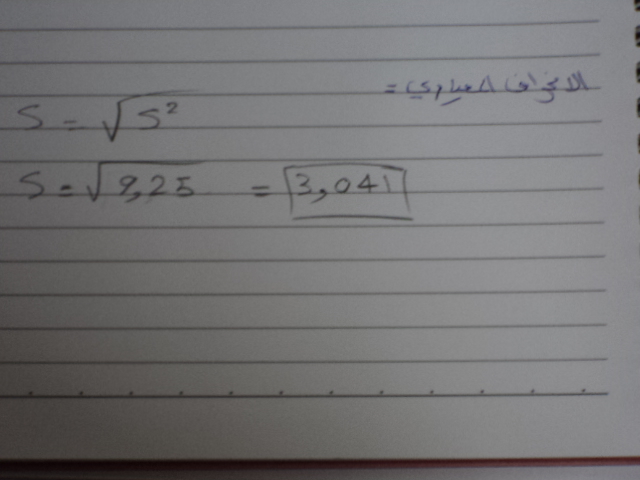 الانحراف المعياري =
S = √S²
S = √9,25 = 3,041